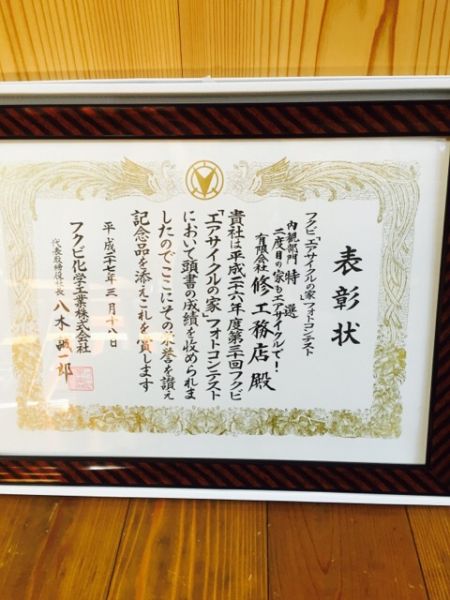 表彰状
フクビ「エアサイクルの家」フォトコンテスト
内観部門 特選
二度目の家もエアサイクルで!
有限会社 修工務店殿
貴社は平成二六年度第三一回フクビ
「エアサイクルの家」フォトコンテスト
において頭書の成績を収められま
したのでここにその栄誉を讃え
記念品を添えこれを賞します
平成二十七年三月十 日
フクビ化学工業株式会社
代表取締役社長 八木誠一郎